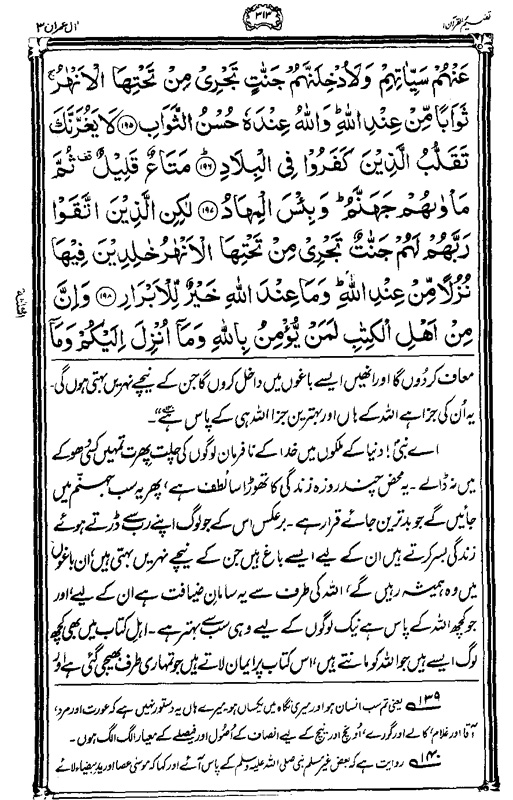 تفہیم القرآن ۱
۳۱۳
اٰل عمران ۳
عَنْهُمْ سَيِّاٰتِهِمْ وَلَاُدْخِلَنَّهُمْ جَنّٰتٍ تَجْرِىْ مِنْ تَحْتِهَا الْاَنْهٰرُ ۚ
ثَوَابًا مِّنْ عِنْدِ اللّٰهِ ؕ وَاللّٰهُ عِنْدَهٗ حُسْنُ الثَّوَابِ ﴿۱۹۵﴾ لَا يَغُرَّنَّكَ
تَقَلُّبُ الَّذِيْنَ كَفَرُوْا فِى الْبِلَادِ ﴿۱۹۶﴾ مَتَاعٌ قَلِيْلٌ ۫ ثُمَّ
مَاْوٰىهُمْ جَهَنَّمُ ؕ وَبِئْسَ الْمِهَادُ ﴿۱۹۷﴾ لٰكِنِ الَّذِيْنَ اتَّقَوْا
رَبَّهُمْ لَهُمْ جَنّٰتٌ تَجْرِىْ مِنْ تَحْتِهَا الْاَنْهٰرُ خٰلِدِيْنَ فِيْهَا
نُزُلًا مِّنْ عِنْدِ اللّٰهِ ؕ وَمَا عِنْدَ اللّٰهِ خَيْرٌ لِّلْاَبْرَارِ ﴿۱۹۸﴾ وَاِنَّ
مِنْ اَهْلِ الْكِتٰبِ لَمَنْ يُّؤْمِنُ بِاللّٰهِ وَمَاۤ اُنْزِلَ اِلَيْكُمْ وَمَاۤ
معاف کر دوں گا اور انھیں ایسے باغوں میں داخل کروں گا جن کے نیچے نہریں بہتی ہوں گی۔
یہ اُن کی جزا ہے اللہ کے ہاں اور بہترین جزا اللہ ہی کے پاس ہے“۔
اے نبیؐ! دنیا کے ملکوں میں خدا کے نافرمان لوگوں کی چلت پھرت تمہیں کسی دھوکے
میں نہ ڈالے۔ یہ محض چند روزہ زندگی کا تھوڑا سا لُطف ہے، پھر یہ سب جہنّم میں
جائیں گے جو بدترین جائے قرار ہے۔ برعکس اس کے جو لوگ اپنے رب سے ڈرتے ہوئے
زندگی بسر کرتے ہیں ان کے لیے ایسے باغ ہیں جن کے نیچے نہریں بہتی ہیں، ان باغوں
میں وہ ہمیشہ رہیں گے، اللہ کی طرف سے یہ سامانِ ضیافت ہے ان کے لیے، اور
جو کچھ اللہ کے پاس ہے نیک لوگوں کے لیے وہی سب سے بہتر ہے۔ اہلِ کتاب میں بھی کچھ
لوگ ایسے ہیں جو اللہ کو مانتے ہیں، اس کتاب پر ایمان لاتے ہیں جو تمہاری طرف بھیجی گئی ہے اور
۱۳۹ یعنی تم سب انسان ہو اور میری نگاہ میں یکساں ہو۔ میرے ہاں یہ دستور نہیں ہے کہ عورت اور مرد،
آقا اور غلام، کالے اور گورے، اُونچ اور نیچ کے لیے انصاف کے اُصُول اور فیصلے کے معیار الگ الگ ہوں۔
۱۴۰ روایت ہے کہ بعض غیر مسلم نبی صلی اللہ علیہ وسلم کے پاس آئے اور کہا کہ موسیٰ عصا اور یدِ بیضاء لائے